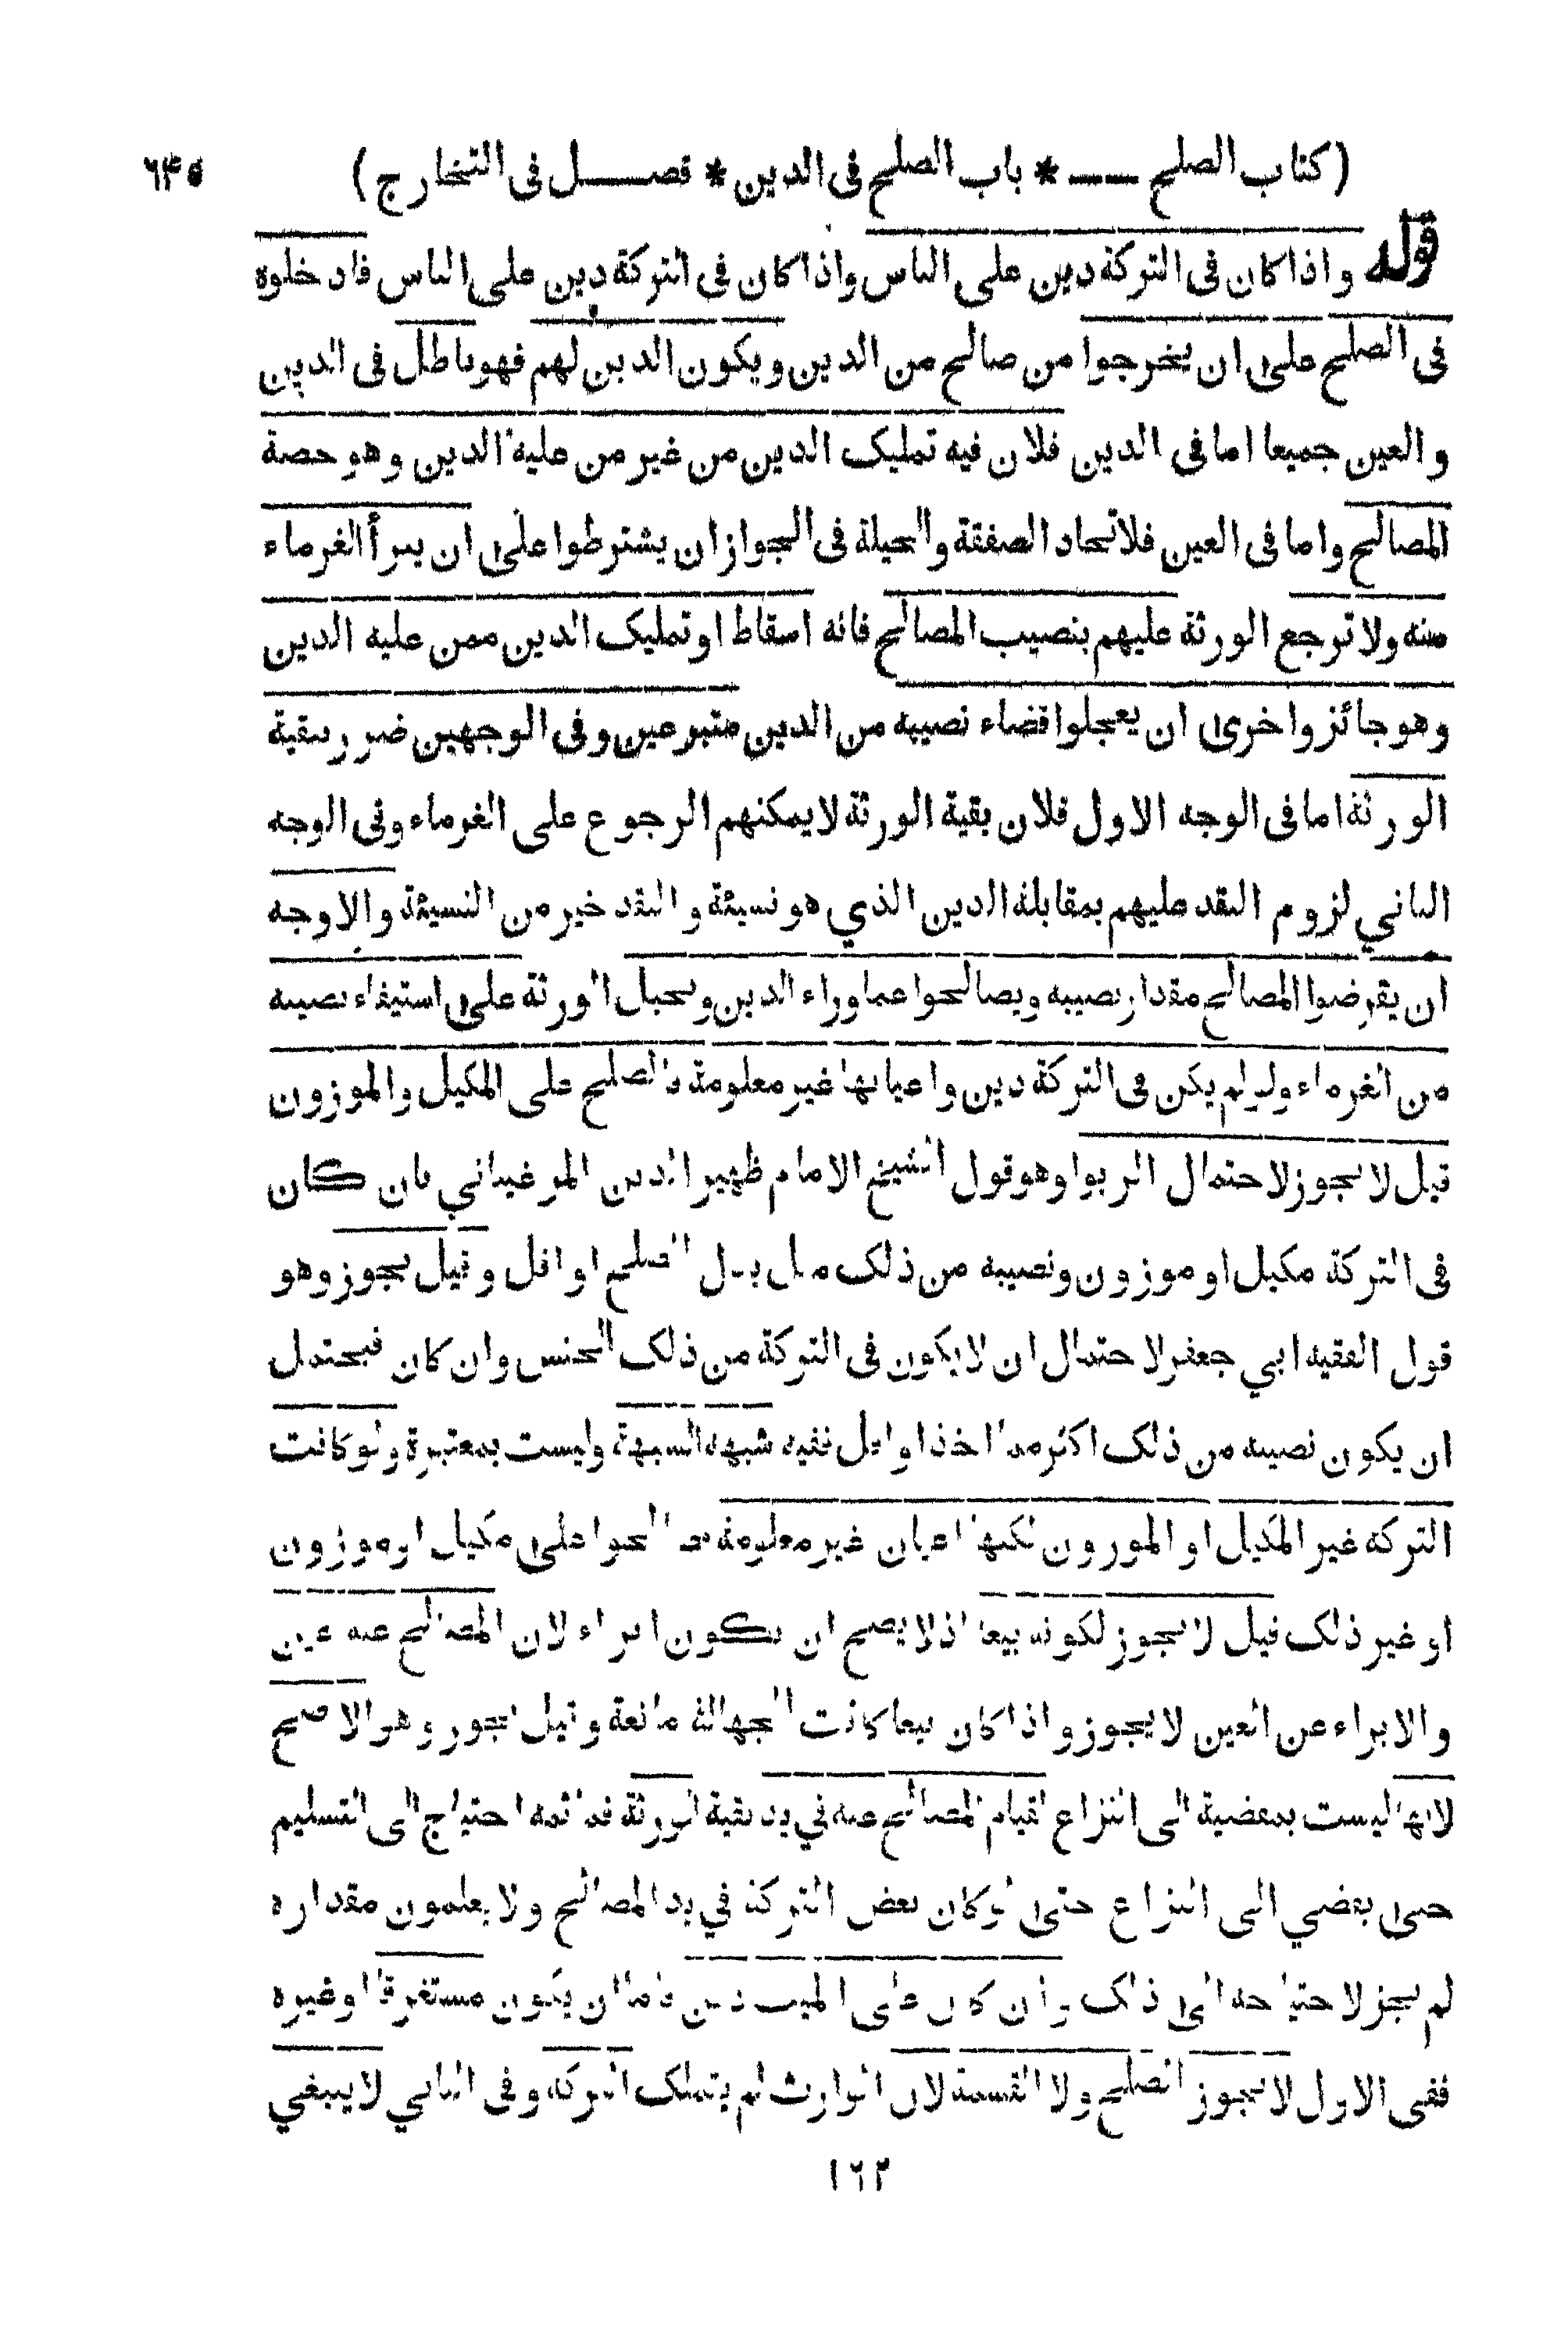 (كتاب الصلح — * باب الصلح فى الدين * فصل فى التخارج) ٦٤٥
قوله واذا كان فى التركة دين على الناس واذا كان فى التركة دين على الناس فادخلوه
فى الصلح على ان يخرجوا من صالح من الدين ويكون الدين لهم فهو باطل فى الدين
والعين جميعا اما فى الدين فلان فيه تمليك الدين من غير من عليه الدين وهو حصة
المصالح واما فى العين فلاتحاد الصفقة والحيلة فى الجواز ان يشترطوا على ان يبرأ الغرماء
منه ولا ترجع الورثة عليهم بنصيب المصالح فانه اسقاط او تمليك الدين ممن عليه الدين
وهو جائز واخرى ان يعجلوا قضاء نصيبه من الدين متبرعين وفى الوجهين ضرر ببقية
الورثة اما فى الوجه الاول فلان بقية الورثة لا يمكنهم الرجوع على الغرماء وفى الوجه
الثاني لزوم النقد عليهم بمقابلة الدين الذي هو نسيئة والنقد خير من النسيئة والاوجه
ان يقرضوا المصالح مقدار نصيبه ويصالحوا عما وراء الدين ويحيل الورثة على استيفاء نصيبه
من الغرماء ولو لم يكن فى التركة دين واعيانها غير معلومة فالصلح على المكيل والموزون
قيل لا يجوز لاحتمال الربوا وهو قول الشيخ الامام ظهير الدين المرغيناني بان كان
فى التركة مكيل او موزون ونصيبه من ذلك مثل بدل الصلح او اقل وقيل يجوز وهو
قول الفقيه ابي جعفر لاحتمال ان لا يكون فى التركة من ذلك الجنس وان كان فيحتمل
ان يكون نصيبه من ذلك اكثر مما اخذ او اقل ففيه شبهة الشبهة وليست بمعتبرة ولو كانت
التركة غير المكيل او الموزون لكنها اعيان غير معلومة فصالحوا على مكيل او موزون
او غير ذلك قيل لا يجوز لكونه بيعا اذ لا يصح ان يكون ابراء لان المصالح عنه عين
والابراء عن العين لا يجوز واذا كان بيعا كانت الجهالة مانعة وقيل يجوز وهو الاصح
لانها ليست بمفضية الى النزاع لقيام المصالح عنه في يد بقية الورثة فما ثمه احتياج الى التسليم
حتى يفضي الى النزاع حتى لو كان بعض التركة في يد المصالح ولا يعلمون مقداره
لم يجز لاحتياجه الى ذلك وان كان على الميت دين فاما ان يكون مستغرقا او غيره
ففى الاول لا يجوز الصلح ولا القسمة لان الوارث لم يتملك التركة وفى الثاني لا ينبغي
١٦٢